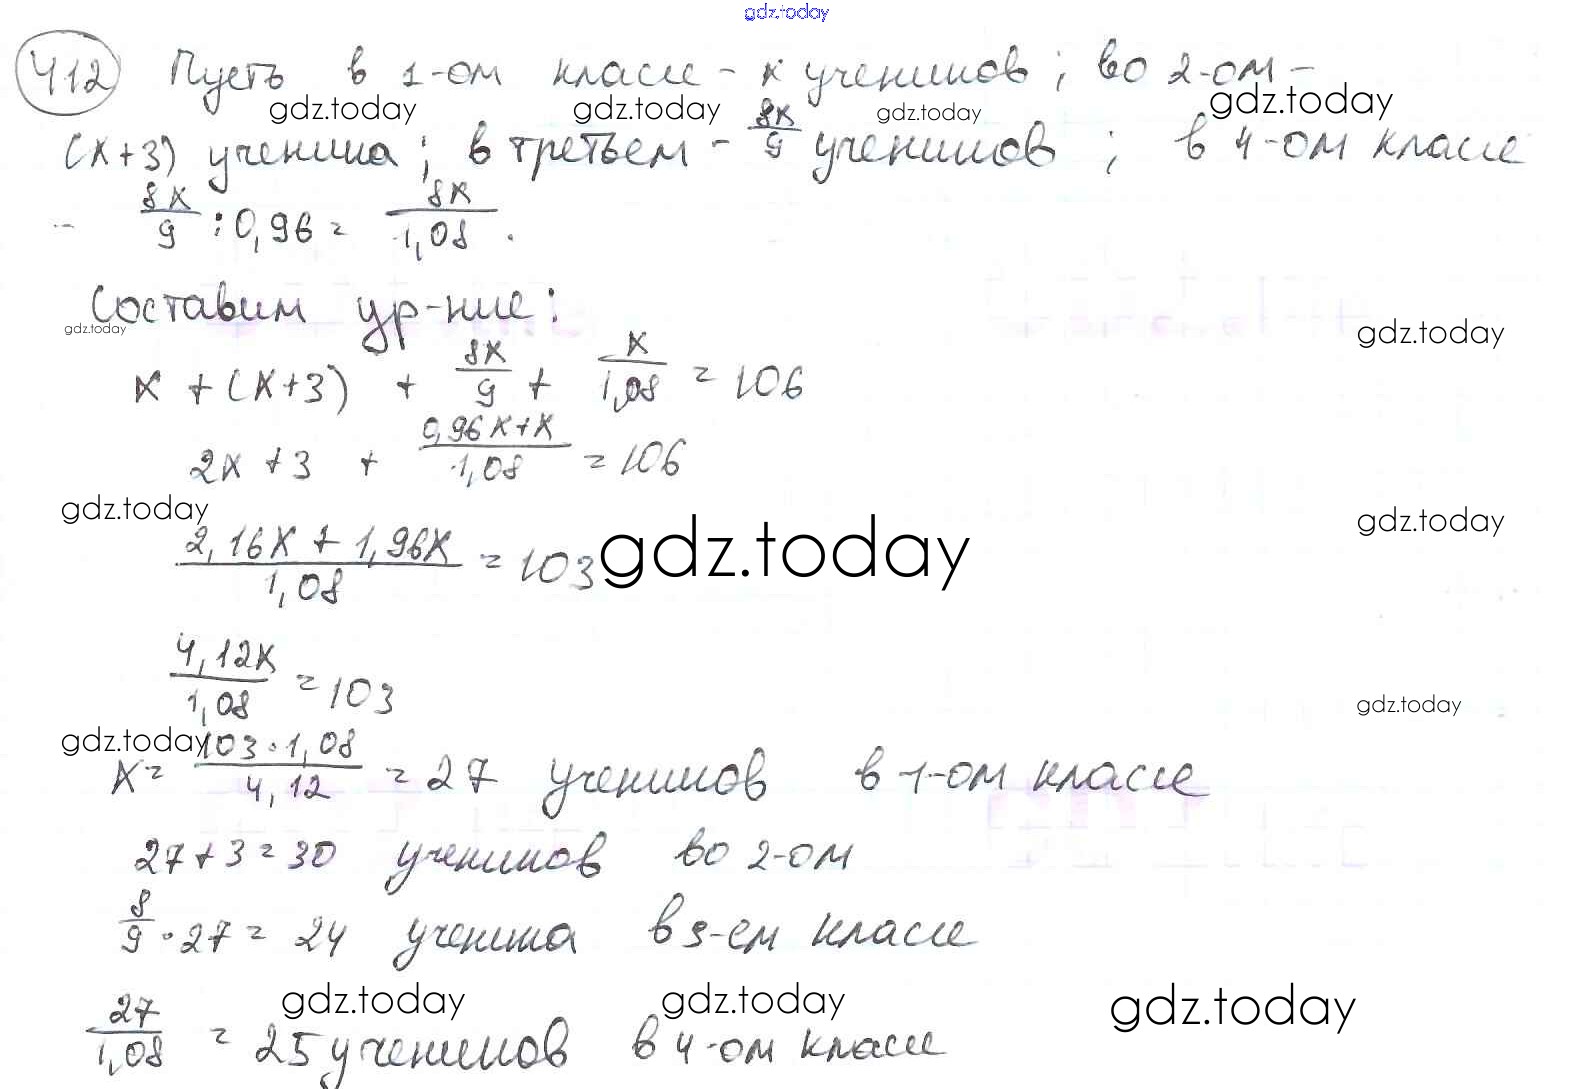 gdz.today
412 Пусть в 1-ом классе - x учеников; во 2-ом -
gdz.today gdz.today gdz.today gdz.today
(x+3) ученика; в третьем - 8x/9 учеников; в 4-ом классе
- 8x/9 : 0,96 = 8x/1,08.
Составим ур-ние:
gdz.today gdz.today
x + (x+3) + 8x/9 + x/1,08 = 106
2x + 3 + (0,96x+x)/1,08 = 106
gdz.today gdz.today gdz.today
(2,16x + 1,96x)/1,08 = 103
4,12x/1,08 = 103
gdz.today
gdz.today
x = (103·1,08)/4,12 = 27 учеников в 1-ом классе
27+3=30 учеников во 2-ом
8/9 · 27 = 24 ученика в 3-ем классе
gdz.today gdz.today gdz.today
27/1,08 = 25 учеников в 4-ом классе